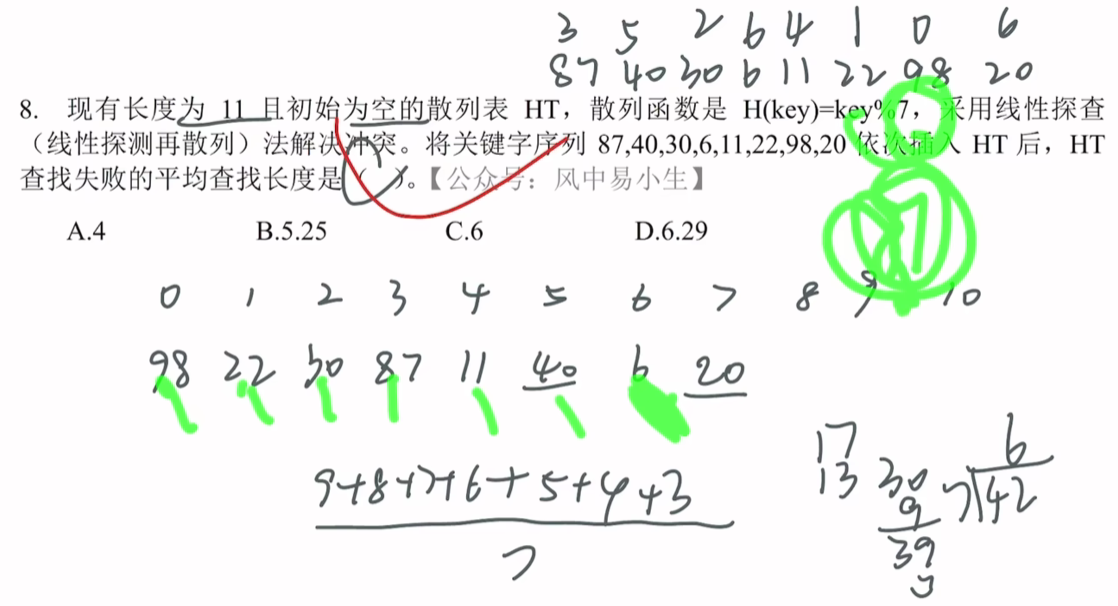 3 5 2 6 4 1 0 6
87 40 30 6 11 22 98 20
8. 现有长度为 11 且初始为空的散列表 HT，散列函数是 H(key)=key%7，采用线性探查
（线性探测再散列）法解决冲突。将关键字序列 87,40,30,6,11,22,98,20 依次插入 HT 后，HT
查找失败的平均查找长度是（ ）。【公众号：风中易小生】
A.4 B.5.25 C.6 D.6.29
0 1 2 3 4 5 6 7 8 9 10
98 22 30 87 11 40 6 20
9+8+7+6+5+4+3
7
17
13
30
9
39
3
6
7 42
7